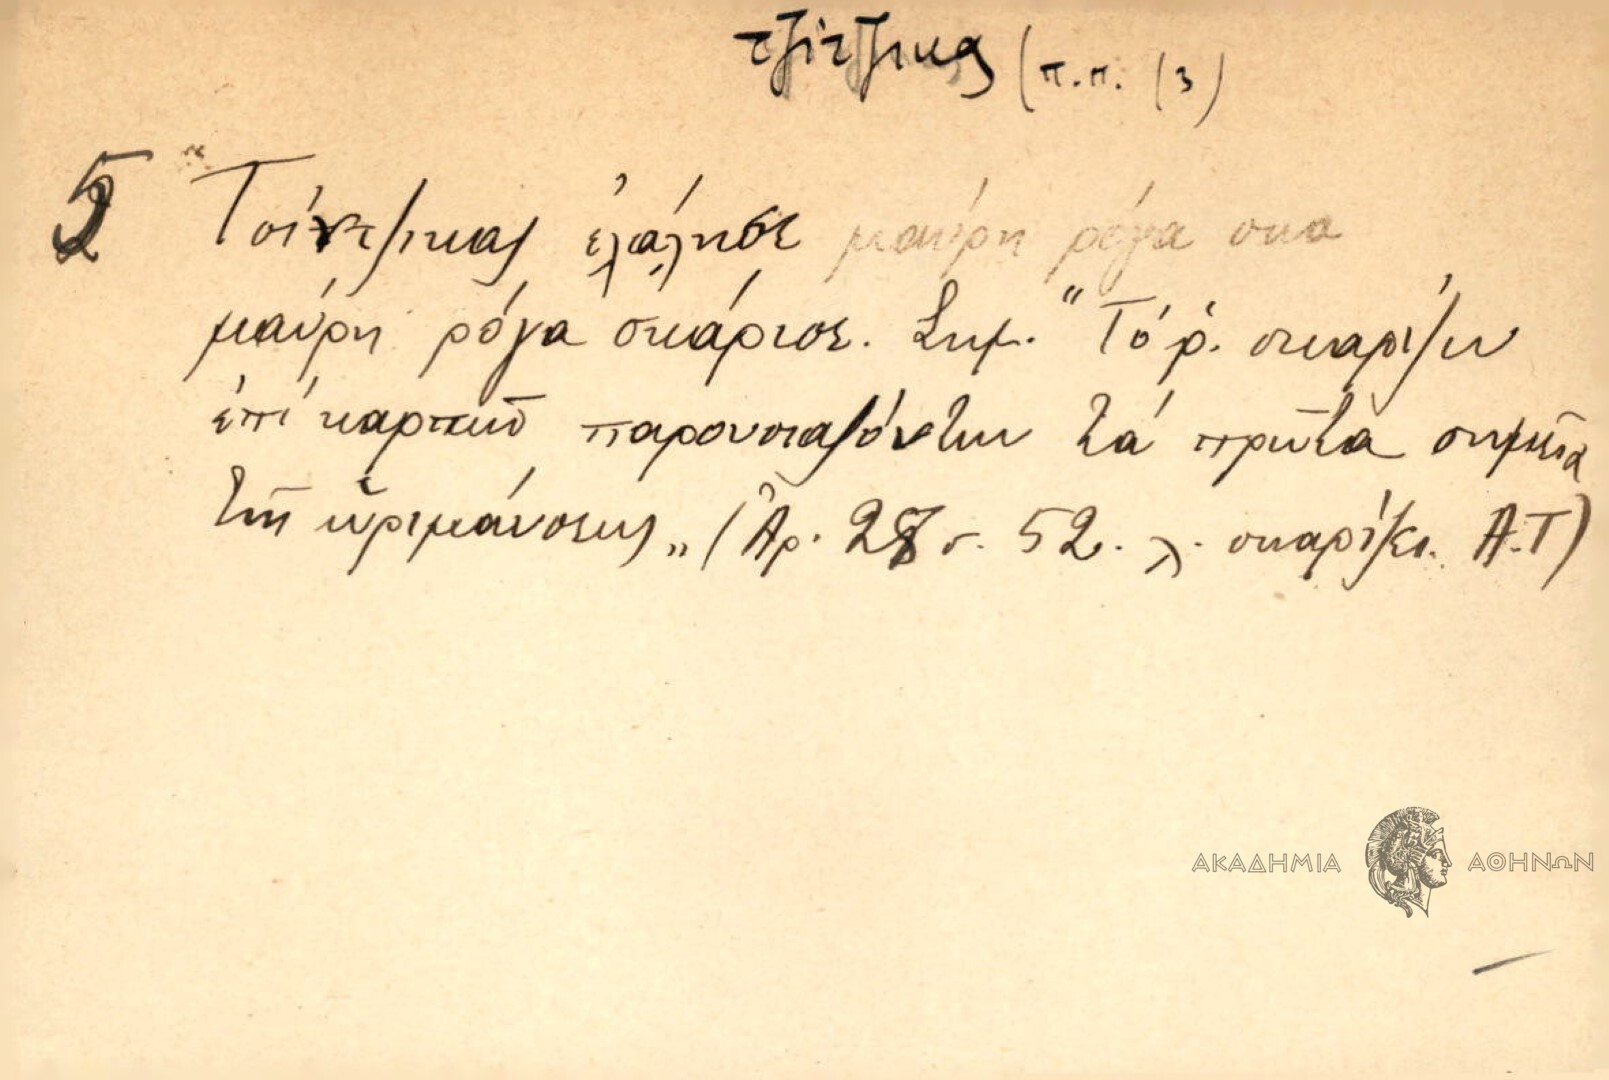 τζίτζικας (π.π. 13)
5 "Τσίντζικας ἐλάλησε μαύρη ρόγα σκα
μαύρη ρόγα σκάρισε. Σημ. "Τό ρ. σκαρίζω
ἐπί καρποῦ παρουσιάζόντων τά πρῶτα σημεῖα
τῆς ὡριμάνσεως„ (Ἀρ. 287 σ. 52. λ. σκαρίζει. Α.Τ)
ΑΚΑΔΗΜΙΑ ΑΘΗΝΩΝ